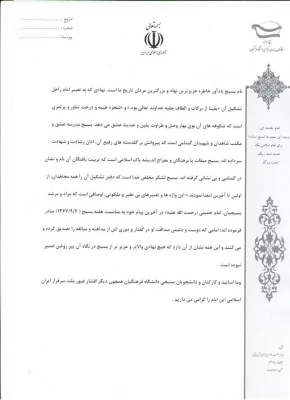 تاریخ :
شماره :
پیوست :
نام بسیج یادآور خاطره عزیزترین نهاد و بزرگترین مردان تاریخ ما است. نهادی که به تعبیر امام راحل
تشکیل آن «یقینا از برکات و الطاف جلیه خداوند تعالی بود.» و «شجره طیبه و درخت تناور و پرثمری
است که شکوفه های آن بوی بهار وصل و طراوت یقین و حدیث عشق می دهد. بسیج مدرسه عشق و
مکتب شاهدان و شهیدان گمنامی است که پیروانش بر گلدسته های رفیع آن، اذان رشادت و شهادت
سرداده اند. بسیج میقات پا برهنگان و معراج اندیشه پاک اسلامی است که تربیت یافتگان آن نام و نشان
در گمنامی و بی نشانی گرفته اند. بسیج لشکر مخلص خدا است که دفتر تشکیل آن را همه مجاهدان، از
اولین تا آخرین امضا نمودند.» این واژه ها و تعبیرهای بی نظیر و ملکوتی، اوصافی است که مراد و مرشد
بسیجیان، امام خمینی (رحمت الله علیه) در آخرین پیام خود به مناسبت هفته بسیج (۱۳۶۷/۹/۲) صادر
فرمودند؛ امامی که دوست و دشمن صداقت او در گفتار و دوری اش از مداهنه و مبالغه را تصدیق کرده و
می کنند و این همه نشان از آن دارد که هیچ نهادی والاتر و عزیز تر از بسیج در نگاه آن پیر روشن ضمیر
نبوده است .
وما اساتید و کارکنان و دانشجویان بسیجی دانشگاه فرهنگیان همچون دیگر اقشار غیور ملت سرفراز ایران
اسلامی این ایام را گرامی می داریم .